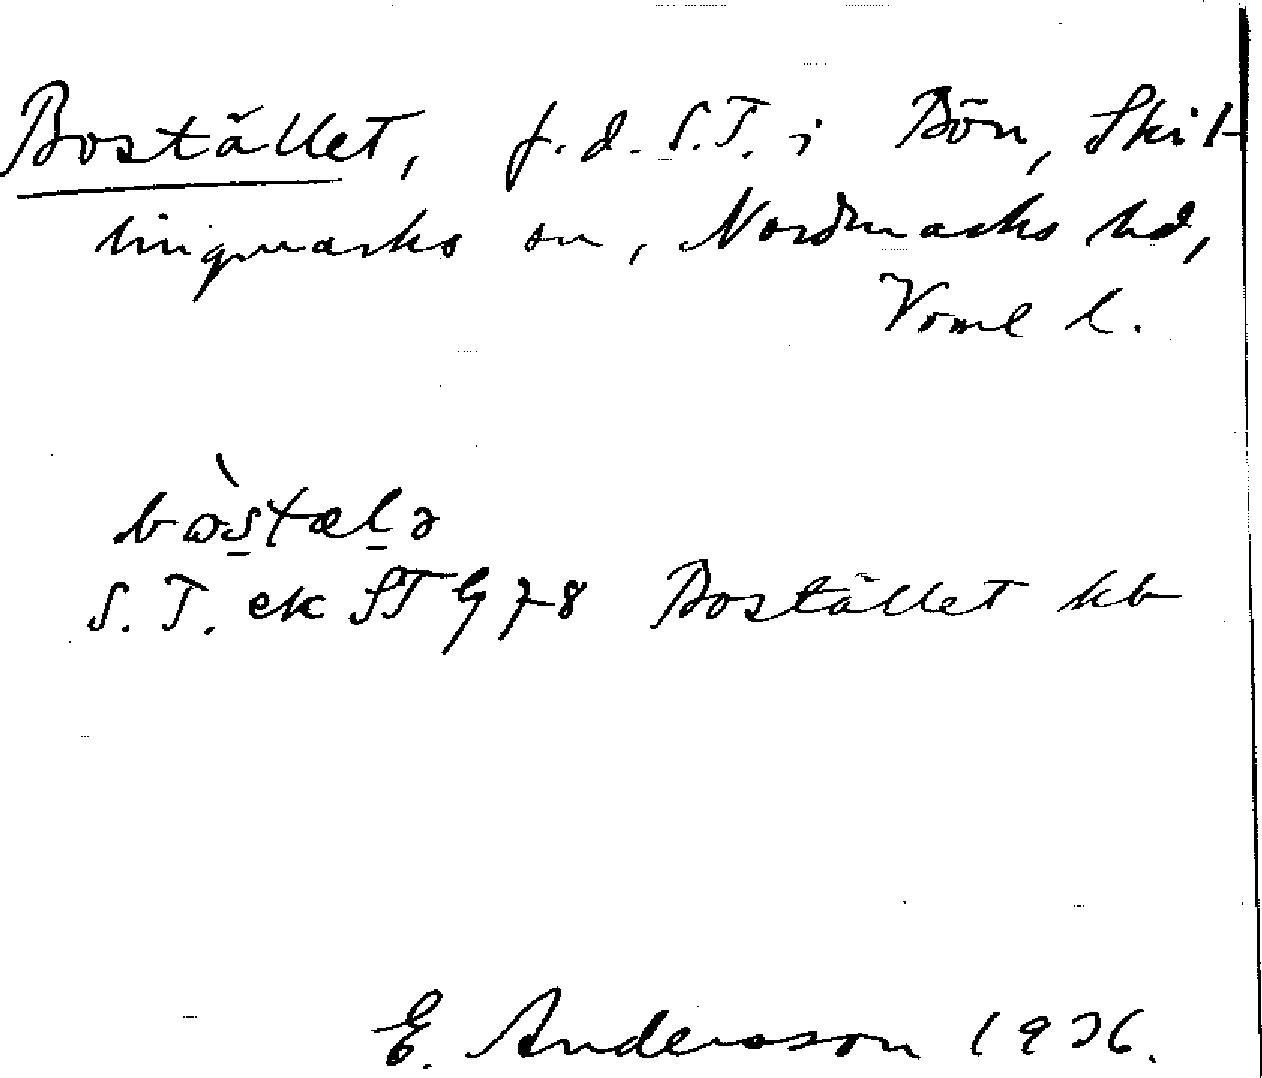 Bostället, f.d. S.T. i Bön, Skil-
lingmarks sn, Nordmarks hd,
Värml l.
bòstælə
S.T. ek ST G 78 Bostället kb
E. Andersson 1926.